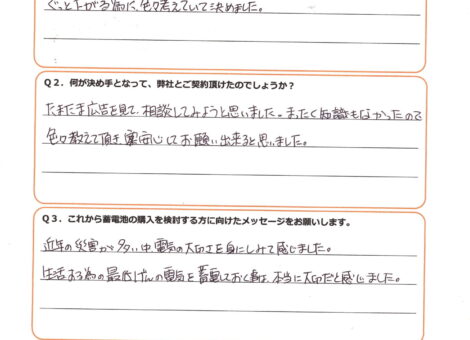 ぐっと上がる為に、色々考えていて決めました。
Q2．何が決め手となって、弊社とご契約頂けたのでしょうか？
たまたま広告を見て、相談してみようと思いました。まったく知識もなかったので
色々教えて頂き、安心してお願い出来ると思いました。
Q3．これから蓄電池の購入を検討する方に向けたメッセージをお願いします。
近年の災害が多い中、電気の大切さを身にしみて感じました。
生活する為の最低げんの電気を蓄電しておく事は、本当に大切だと感じました。